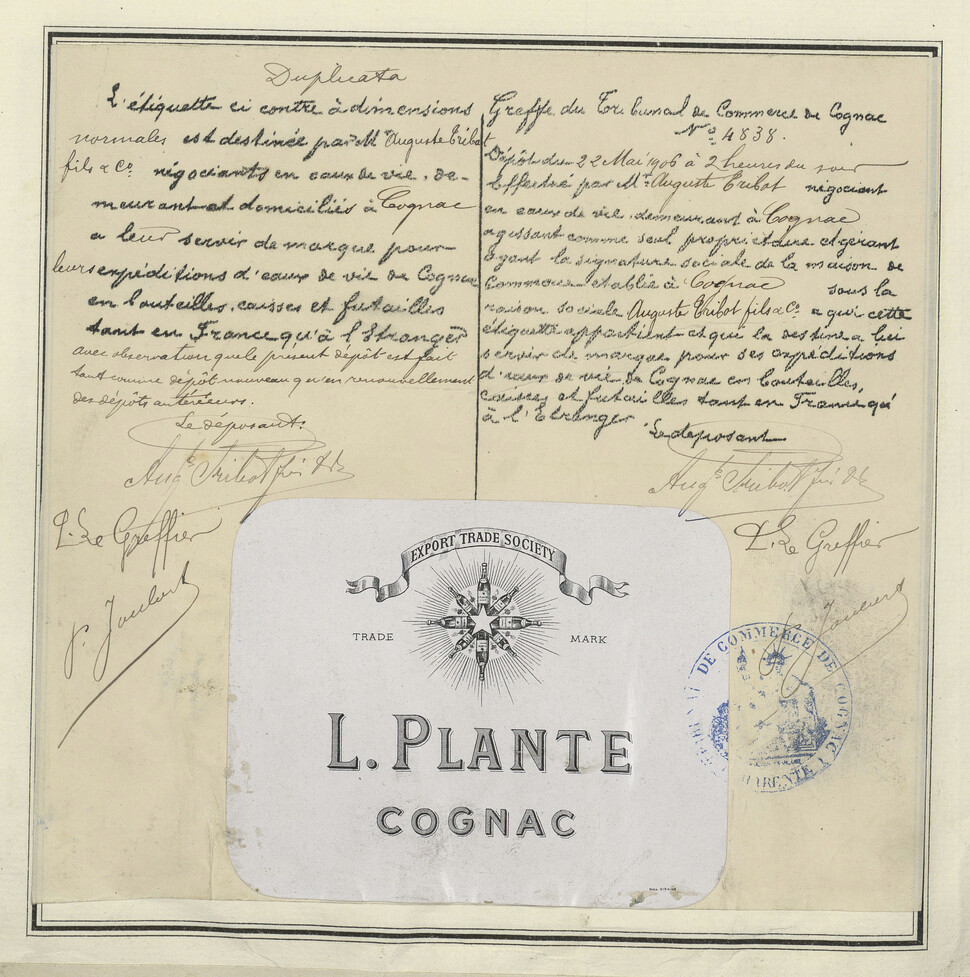 Duplicata
L'étiquette ci contre à dimensions
normales est destinée par M Auguste Tribot
fils & Co. négociants en eaux de vie, de-
meurant et domiciliés à Cognac
a leur servir de marque pour
leurs expéditions d'eaux de vie de Cognac
en bouteilles, caisses et futailles
tant en France qu'à l'Etranger
avec observation que le présent dépôt est fait
tant comme dépôt nouveau qu'en renouvellement
des dépôts antérieurs.
Le déposant:
Augte Tribot fils & Co
P. Le Greffier
P. Joubert
Greffe du Tribunal de Commerce de Cognac
No 4838.
Dépôt du 22 Mai 1906 à 2 heures du soir
Effectué par Mr Auguste Tribot négociant
en eaux de vie, demeurant à Cognac
agissant comme seul propriétaire et gérant
ayant la signature sociale de la maison de
Commerce établie à Cognac sous la
raison sociale Auguste Tribot fils & Co. a qui cette
étiquette appartient et qui la destine a lui
servir de marque pour ses expéditions
d'eaux de vie de Cognac en bouteilles,
caisses et futailles tant en France qu'
à l'Etranger
Le déposant
Augte Tribot fils & Co
P. Le Greffier
P. Joubert
EXPORT TRADE SOCIETY
TRADE MARK
L. PLANTE
COGNAC
DE COMMERCE DE COGNAC